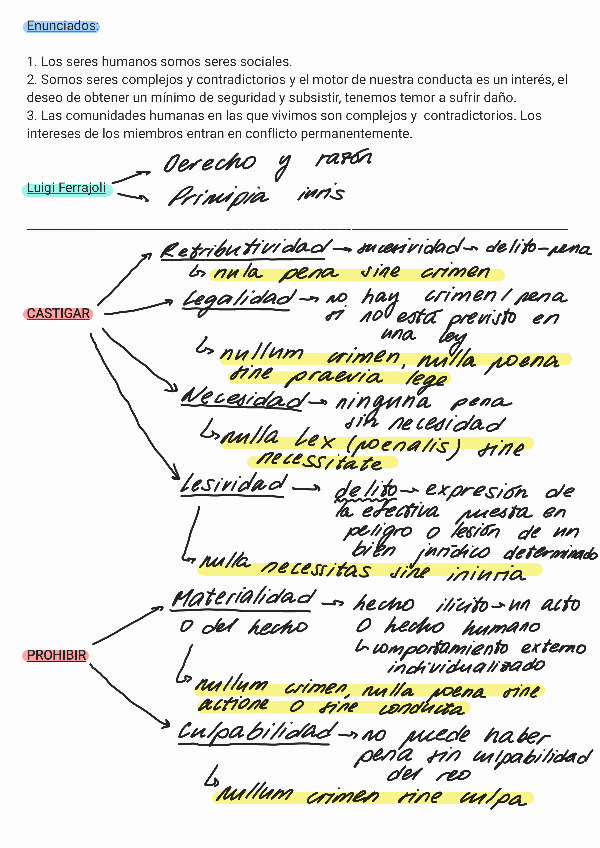 Enunciados:
1. Los seres humanos somos seres sociales.
2. Somos seres complejos y contradictorios y el motor de nuestra conducta es un interés, el
deseo de obtener un mínimo de seguridad y subsistir, tenemos temor a sufrir daño.
3. Las comunidades humanas en las que vivimos son complejos y contradictorios. Los
intereses de los miembros entran en conflicto permanentemente.
Derecho y razón
Luigi Ferrajoli
Principia iuris
Retributividad → sucesividad → delito-pena
↳ nula pena sine crimen
Legalidad → no hay crimen / pena
CASTIGAR
si no está previsto en
una ley
↳ nullum crimen, nulla poena
sine praevia lege
Necesidad → ninguna pena
sin necesidad
↳ nulla Lex (poenalis) sine
necessitate
Lesividad → delito → expresión de
la efectiva puesta en
peligro o lesión de un
bien jurídico determinado
↳ nulla necessitas sine iniuria
Materialidad → hecho ilícito → un acto
O del hecho O hecho humano
PROHIBIR
↳ comportamiento externo
individualizado
↳ nullum crimen, nulla poena sine
actione o sine conducta
Culpabilidad → no puede haber
pena sin culpabilidad
del reo
↳ nullum crimen sine culpa